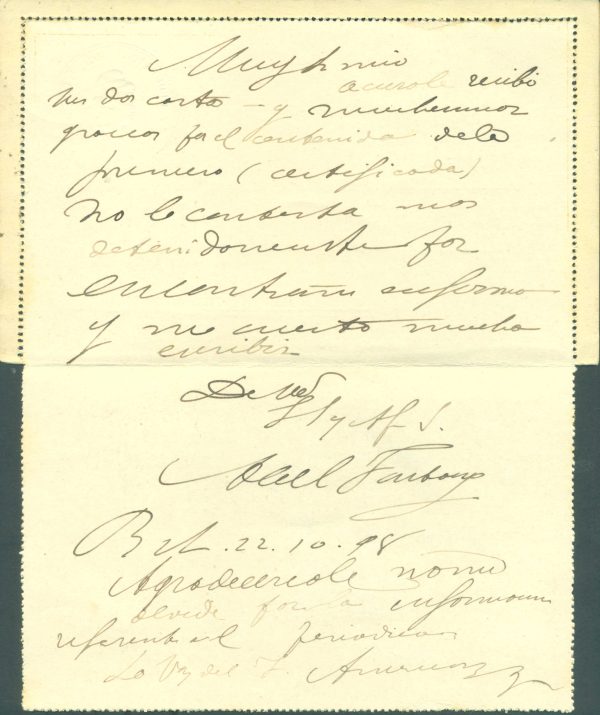 Muy Sr mio
acusole recibo
sus dos carta y muchisimas
gracias por el contenido dela
primera (certificada)
no le contesta mas
detenidamente por
encontrarme enfermo
y me cuesta mucho
escribir
De Vd
S. y Af. S.
Abel
Bxl. 22.10.98
Agradecerele no me
olvide por la informacion
referente al periodico
La Voz del